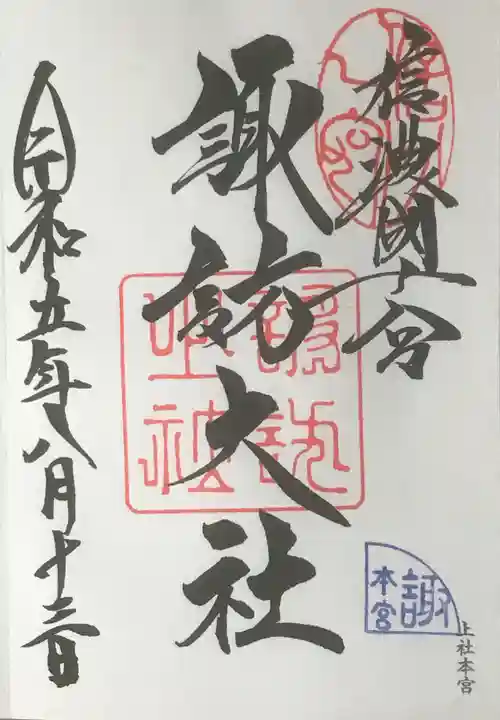 信濃國一之宮
諏訪大社
令和五年八月十三日
諏訪大社
本宮
諏
上社本宮